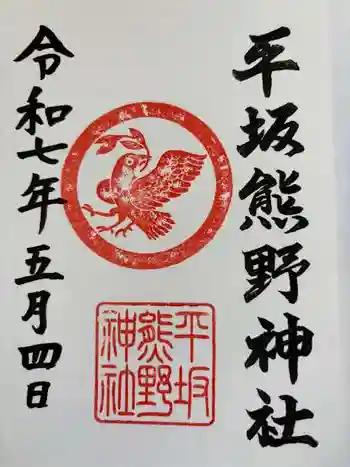 平坂熊野神社
平坂
熊野
神社
令和七年五月四日